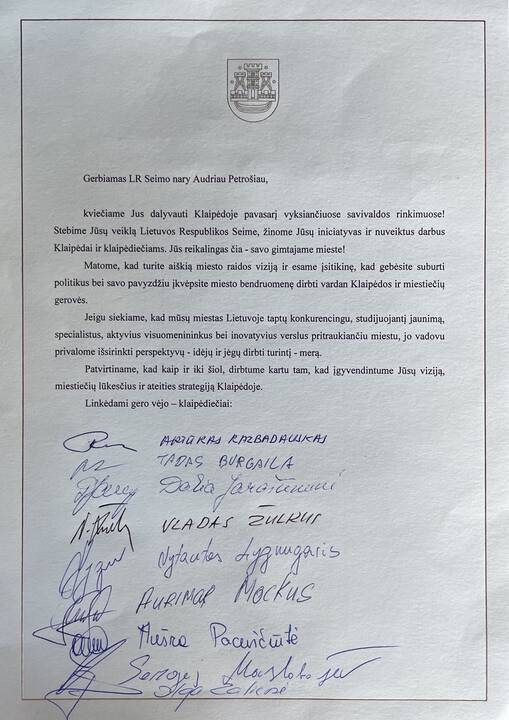 Gerbiamas LR Seimo nary Audriau Petrošiau,
kviečiame Jus dalyvauti Klaipėdoje pavasarį vyksiančiuose savivaldos rinkimuose!
Stebime Jūsų veiklą Lietuvos Respublikos Seime, žinome Jūsų iniciatyvas ir nuveiktus darbus
Klaipėdai ir klaipėdiečiams. Jūs reikalingas čia - savo gimtajame mieste!
Matome, kad turite aiškią miesto raidos viziją ir esame įsitikinę, kad gebėsite suburti
politikus bei savo pavyzdžiu įkvėpsite miesto bendruomenę dirbti vardan Klaipėdos ir miestiečių
gerovės.
Jeigu siekiame, kad mūsų miestas Lietuvoje taptų konkurencingu, studijuojantį jaunimą,
specialistus, aktyvius visuomenininkus bei inovatyvius verslus pritraukiančiu miestu, jo vadovu
privalome išsirinkti perspektyvų - idėjų ir jėgų dirbti turintį - merą.
Patvirtiname, kad kaip ir iki šiol, dirbtume kartu tam, kad įgyvendintume Jūsų viziją,
miestiečių lūkesčius ir ateities strategiją Klaipėdoje.
Linkėdami gero vėjo – klaipėdiečiai:
ARTŪRAS RAZBADAUSKAS
TADAS BURGAILA
Dalia
VLADAS ŽULKUS
Vytautas
AURIMAS MOCKUS
Aušra
Sergej
Olga